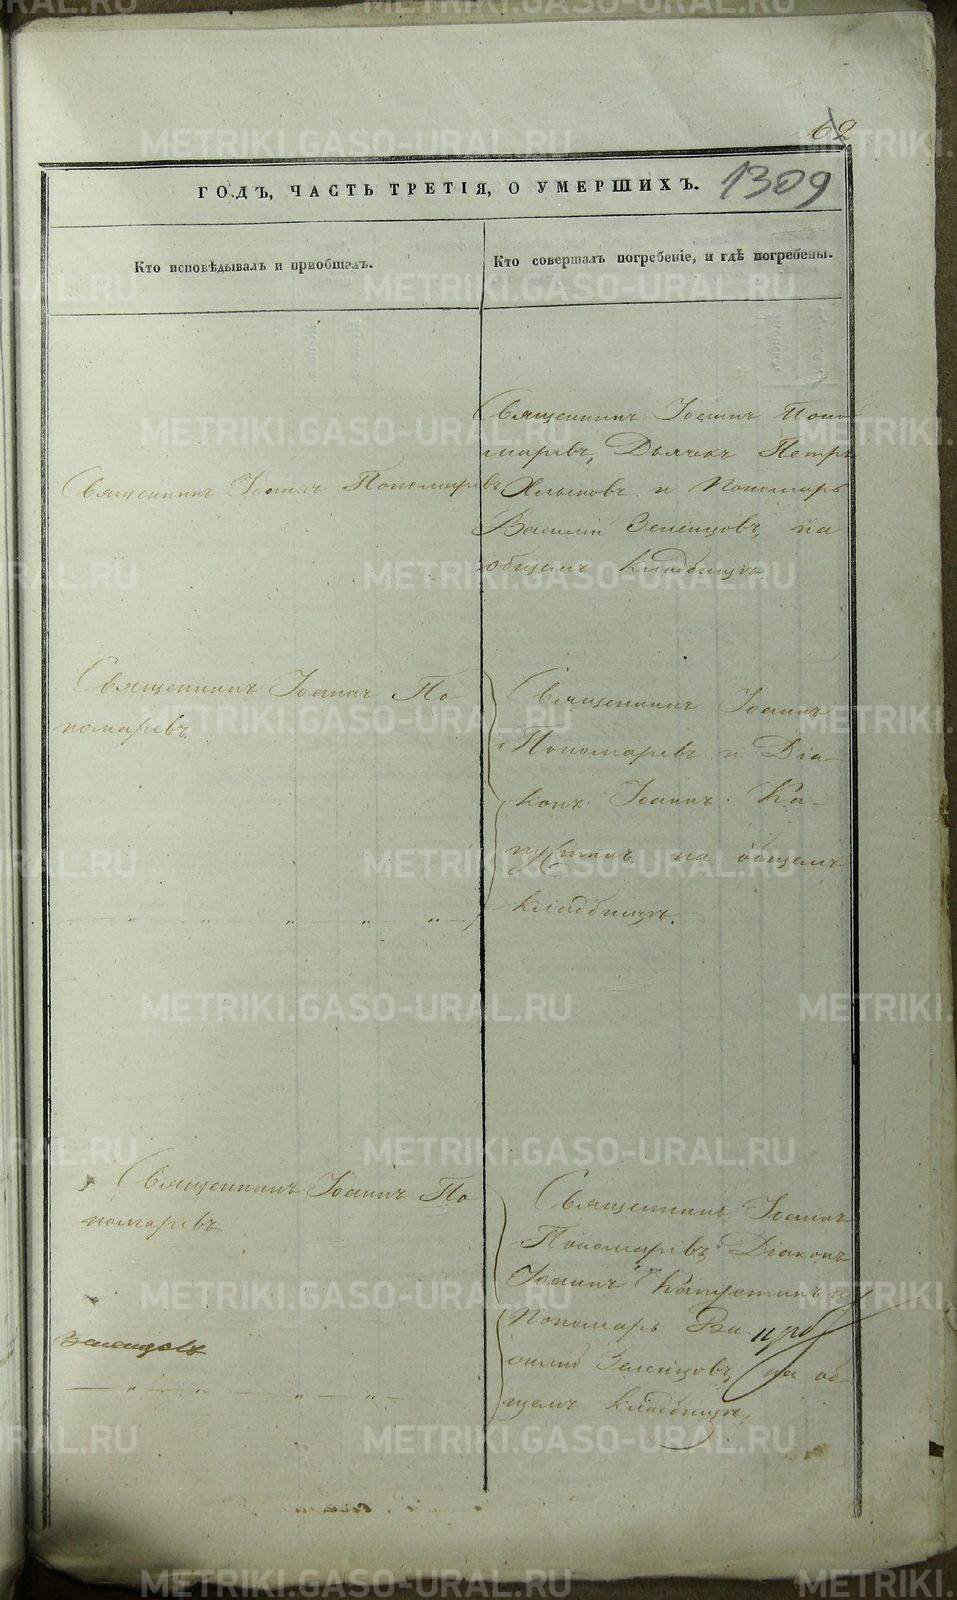 62
1309
ГОДЪ, ЧАСТЬ ТРЕТІЯ, О УМЕРШИХЪ.
Кто исповѣдывалъ и пріобщалъ.
Кто совершалъ погребеніе, и гдѣ погребены.
Священникъ Іоаннъ Пономаревъ
Священникъ Іоаннъ Поно
маревъ, Дьячекъ Петръ
и Пономарь
Василій Зеленцовъ, на
общемъ кладбищѣ.
Священникъ Іоаннъ По-
номаревъ.
Священникъ Іоаннъ
Пономаревъ и Діа-
конъ Іоаннъ Ка-
пустинъ, на общемъ
кладбищѣ.
Священникъ Іоаннъ По
номаревъ.
Зеленцовъ
Священникъ Іоаннъ
Пономаревъ, Діаконъ
Іоаннъ Капустинъ и
Пономарь Ва
силій Зеленцовъ, на об-
щемъ кладбищѣ.
METRIKI.GASO-URAL.RU